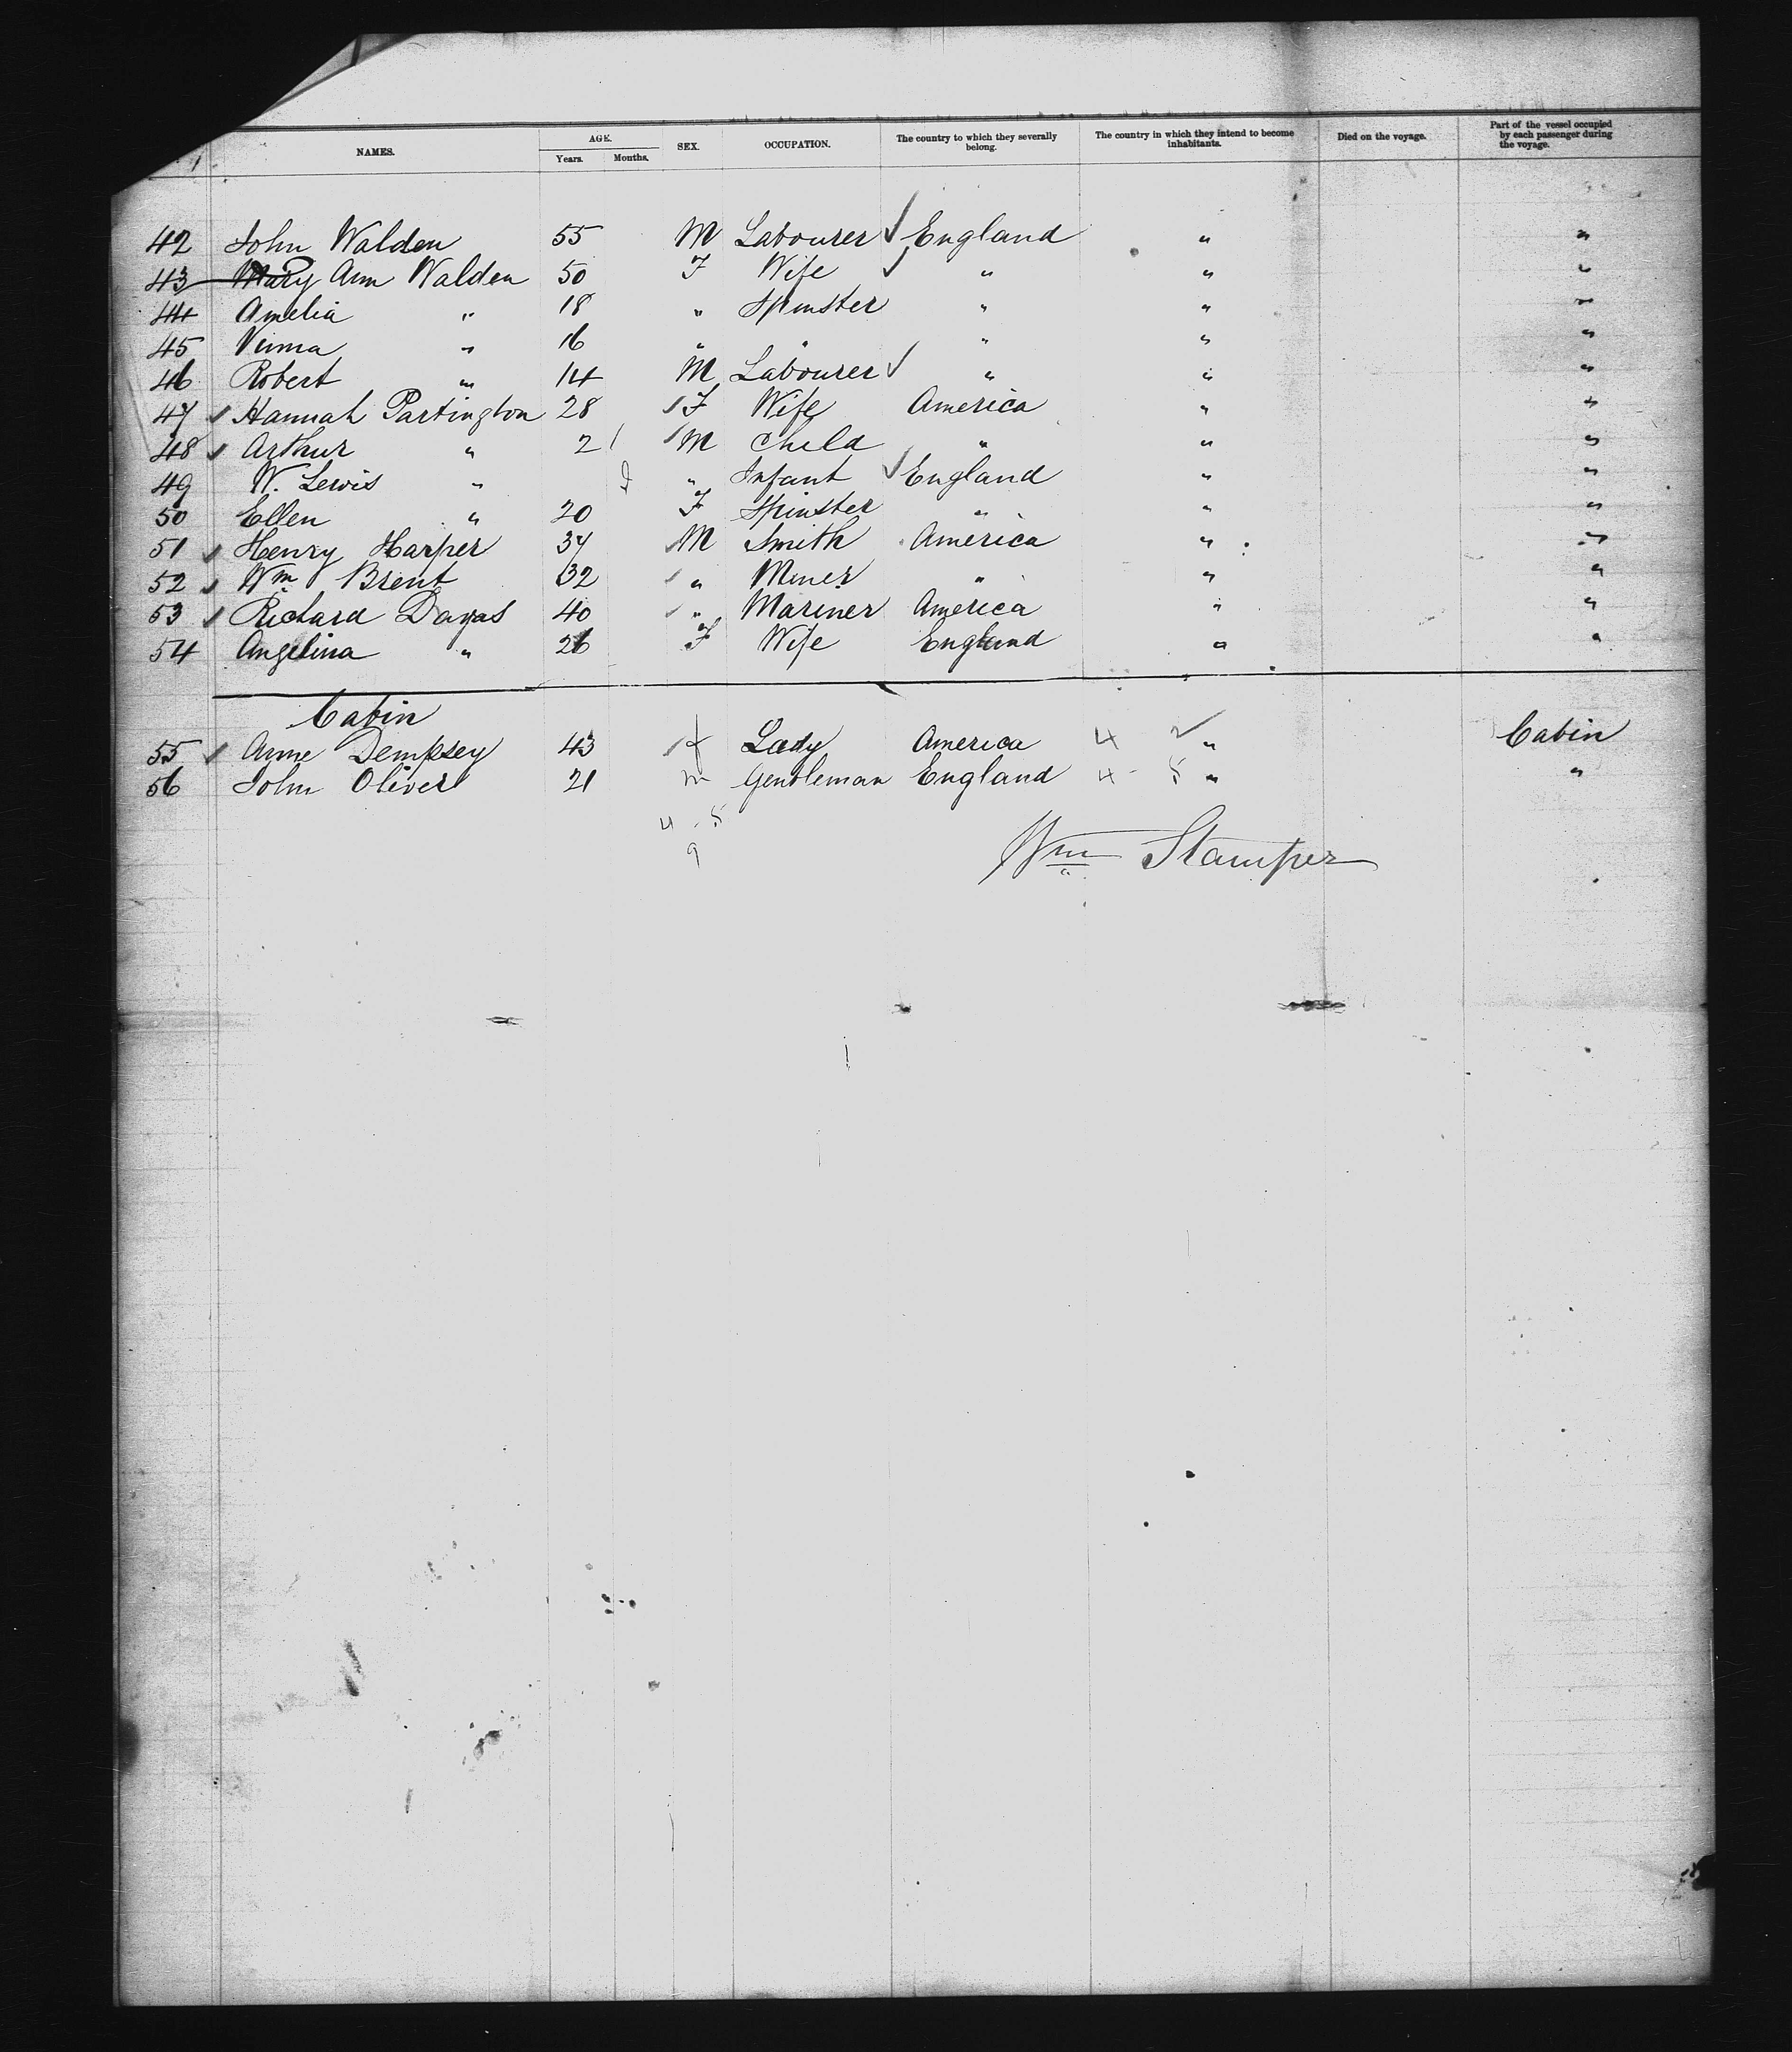 NAMES. AGE. Years. Months. SEX. OCCUPATION. The country to which they severally belong. The country in which they intend to become inhabitants. Died on the voyage. Part of the vessel occupied by each passenger during the voyage.
42 John Walden 55 M Labourer England " "
43 Mary Ann Walden 50 F Wife " " "
44 Amelia " 18 " Spinster " " "
45 " 16 " " " " "
46 Robert " 14 M Labourer " " "
47 Hannah Partington 28 F Wife America " "
48 Arthur " 2 M Child " " "
49 W. Lewis " " Infant England " "
50 Ellen " 20 F Spinster " " "
51 Henry Harper 34 M Smith America " "
52 Wm Brent 32 " Miner " " "
53 Richard 40 " Mariner America " "
54 Angelina " 26 F Wife England " "
Cabin
55 Anne Dempsey 43 f Lady America 4 2 " Cabin
56 John Oliver 21 m Gentleman England 4 - 5 " "
4 - 5
9
Wm Stamper